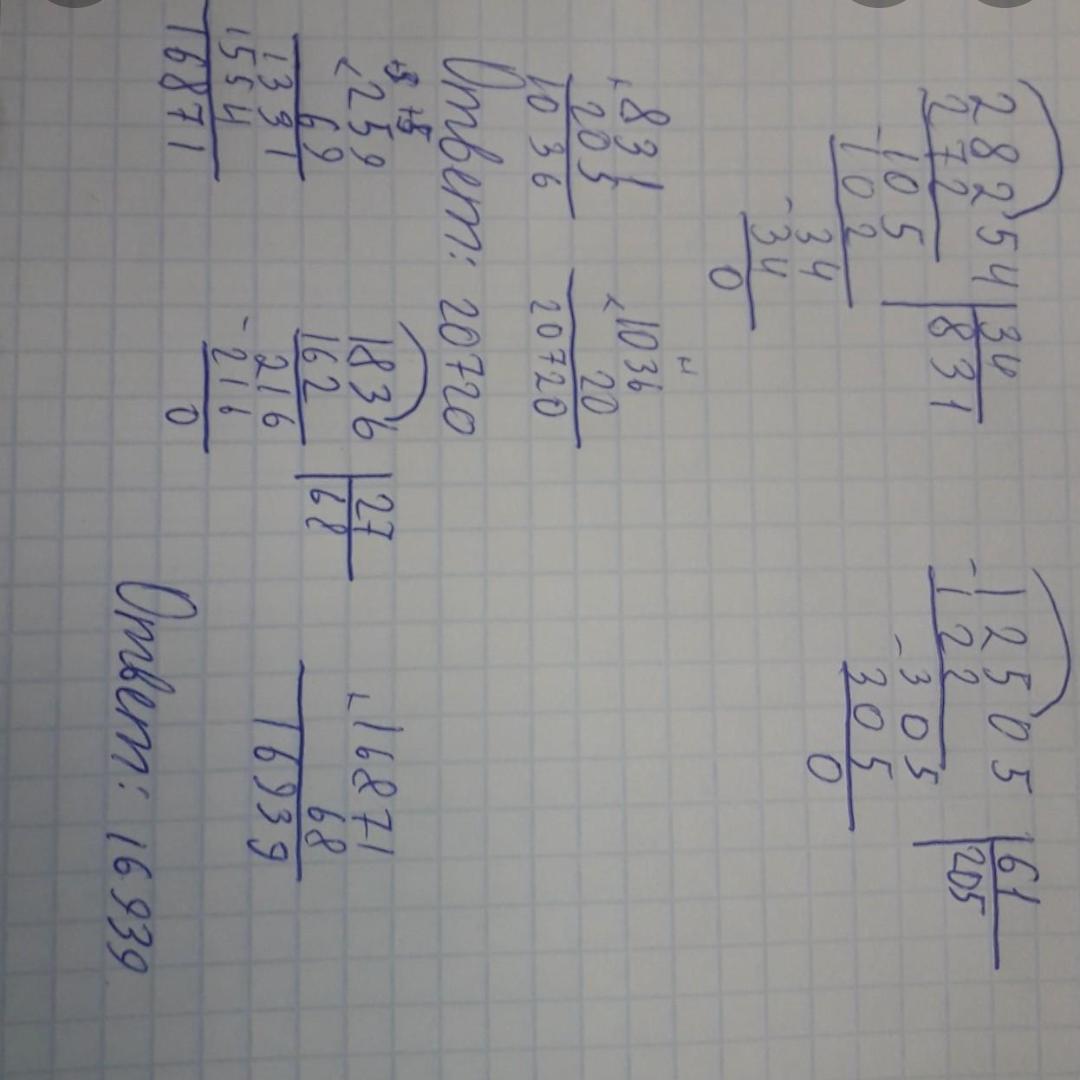 28254 34
272 831
- 105
102
- 34
34
0
- 12505 61
122 205
- 305
305
0
+ 831
205
1036
× 1036
20
20720
Ответ: 20720
× 259
69
1331
1554
16871
1836 27
162 68
216
- 216
0
+ 16871
68
16939
Ответ: 16939